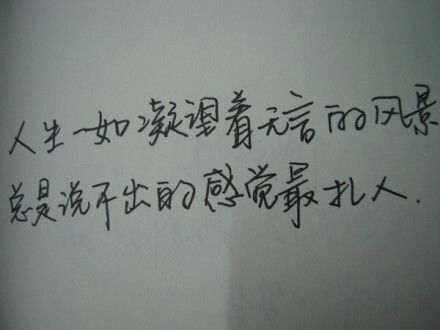 人生一如凝望着无言的风景
总是说不出的感觉最扎人.